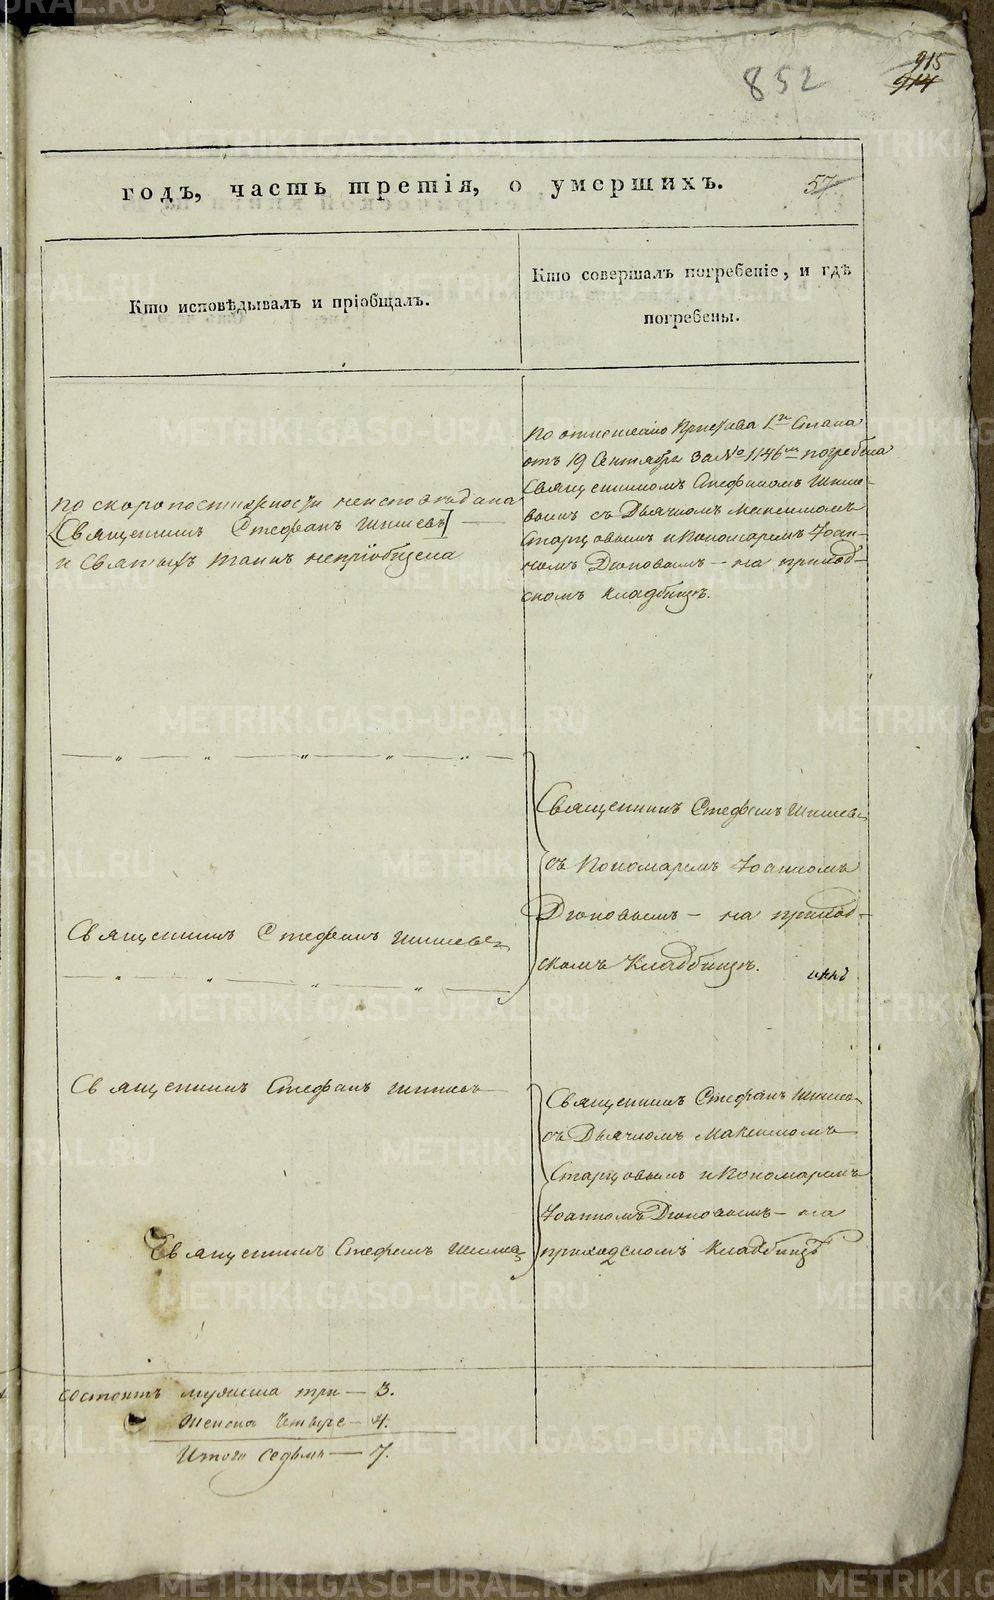 852
915
914
годъ, часть третія, о умершихъ.
57
Кто исповѣдывалъ и пріобщалъ.
Кто совершалъ погребеніе, и гдѣ
погребены.
По скоропостижности неисповѣдана
[Священникъ Стефанъ Шишевъ]
и Святыхъ таинъ непріобщена
По отношенію Пристава 1го Стана
отъ 19 Сентября за №1146мъ погребена
Священникомъ Стефаномъ Шише-
вымъ съ Дьячкомъ Максимомъ
Старцовымъ и Пономаремъ Іоан-
номъ Дюповымъ - на приход-
скомъ кладбищѣ.
Священникъ Стефанъ Шишевъ
съ Пономаремъ Іоанномъ
Дюповымъ - на приход-
скомъ Кладбищѣ.
Священникъ Стефанъ Шишевъ
Священникъ Стефанъ Шишевъ
Священникъ Стефанъ Шишевъ
съ Дьячкомъ Максимомъ
Старцовымъ и Пономаремъ
Іоанномъ Дюповымъ - на
приходскомъ Кладбищѣ
Священникъ Стефанъ Шишевъ
состоитъ мужеска три - 3.
Женска четыре - 4.
Итого седмь - 7.
METRIKI.GASO-URAL.RU